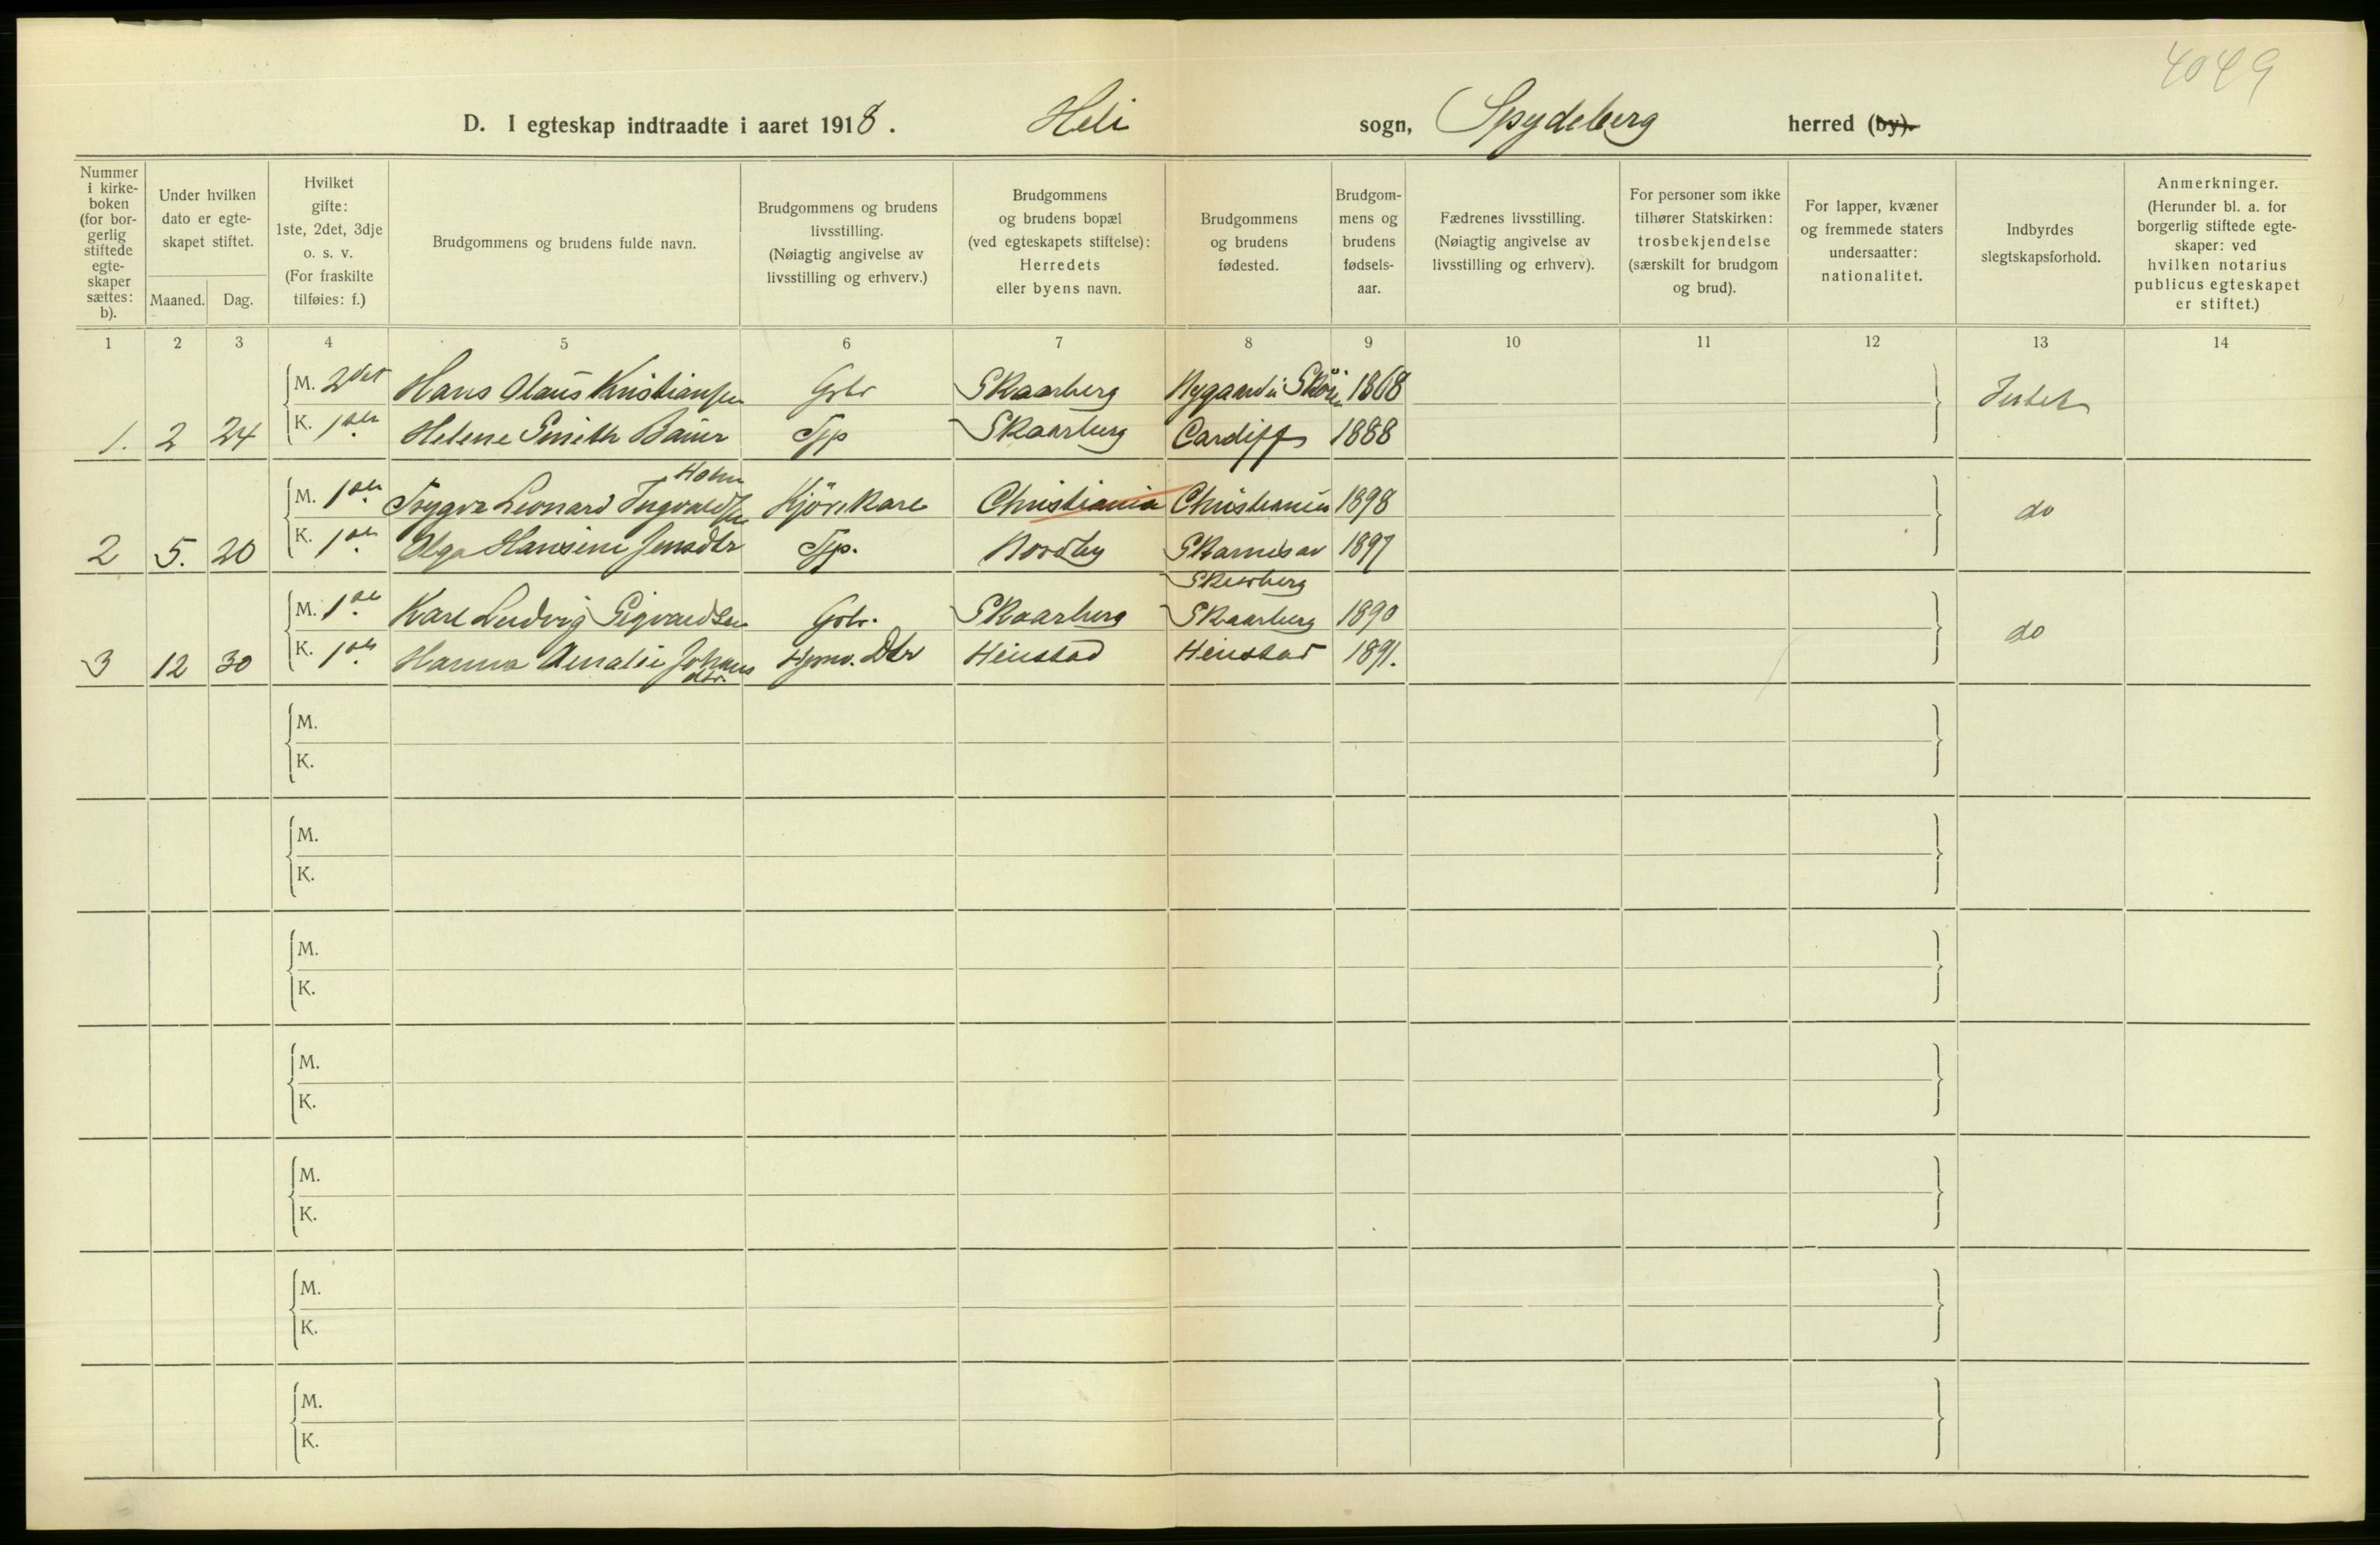 4049
D. I egteskap indtraadte i aaret 1918. Heli sogn, Spydeberg herred (by).
Nummer i kirkeboken (for borgerlig stiftede egteskaper sættes: b).
Under hvilken dato er egteskapet stiftet.
Maaned. Dag.
Hvilket gifte: 1ste, 2det, 3dje o. s. v. (For fraskilte tilføies: f.)
Brudgommens og brudens fulde navn.
Brudgommens og brudens livsstilling. (Nøiagtig angivelse av livsstilling og erhverv.)
Brudgommens og brudens bopæl (ved egteskapets stiftelse): Herredets eller byens navn.
Brudgommens og brudens fødested.
Brudgommens og brudens fødselsaar.
Fædrenes livsstilling. (Nøiagtig angivelse av livsstilling og erhverv).
For personer som ikke tilhører Statskirken: trosbekjendelse (særskilt for brudgom og brud).
For lapper, kvæner og fremmede staters undersaatter: nationalitet.
Indbyrdes slegtskapsforhold.
Anmerkninger. (Herunder bl. a. for borgerlig stiftede egteskaper: ved hvilken notarius publicus egteskapet er stiftet.)
1 2 3 4 5 6 7 8 9 10 11 12 13 14
M. 2det Hans Olaus Kristiansen Gbr Skaarberg Nygaard i 1868 Intet
1. 2 24 K. 1ste Helene Smith Bauer Tjp Skaarberg Cardiff 1888
Holm
M. 1ste Trygve Leonard Ingvaldsen Kjörekarl Christiania Christiania 1898 do
2 5. 20 K. 1ste Olga Hansine Jensdtr Tjp. Nordby 1897
Skaarberg
M. 1ste Karl Ludvig Sigvardsen Gbr. Skaarberg Skaarberg 1890 do
3 12 30 K. 1ste Hanna Amalie Johans Hjmv. Dtr Heustad Heustad 1891.
dtr.
M.
K.
M.
K.
M.
K.
M.
K.
M.
K.
M.
K.
M.
K.